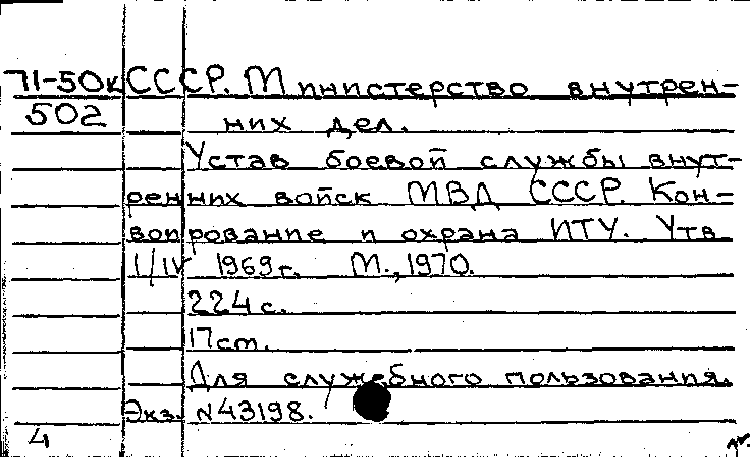 71-50к СССР. Министерство внутрен-
502 них дел.
Устав боевой службы внут-
ренних войск МВД СССР. Кон-
воирование и охрана ИТУ. Утв
1/IV 1969г. М., 1970.
224 с.
17см.
Для служебного пользования.
Экз. №43198.
4